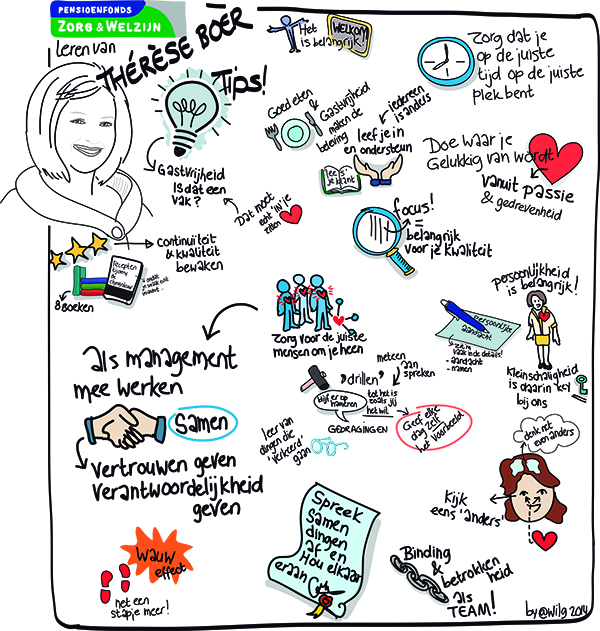 PENSIOENFONDS
ZORG & WELZIJN
leren van
THÉRÈSE BOER
Tips!
Het
is belangrijk!
WELKOM
Zorg dat je
op de juiste
tijd op de juiste
plek bent
Goed eten
&
Gastvrijheid
maken de
beleving
iedereen
is anders
leef je in
en ondersteun
lees
je klant
Doe waar je
Gelukkig van wordt!
vanuit passie
& gedrevenheid
Gastvrijheid
is dat een
vak?
Dat moet
echt 'in' je
zitten
focus!
=
belangrijk
voor je kwaliteit
Continuïteit
& kwaliteit
bewaken
recepten
8 boeken
persoonlijkheid
is belangrijk!
Persoonlijke
aandacht
zit 'm
vaak in de details!
- aandacht
- namen
kleinschaligheid
is daarin key
bij ons
Zorg voor de juiste
mensen om je heen
als management
mee werken
Samen
vertrouwen geven
verantwoordelijkheid
geven
meteen
aan
spreken
"drillen"
blijf er op
hameren
tot het is
zoals jij
het wil
GEDRAGINGEN
Geef elke
dag zelf
het voorbeeld
leer van
dingen die
'verkeerd'
gaan
denk net
even anders
Kijk
eens 'anders'
Wauw
effect
net een
stapje meer!
Spreek
Samen
dingen
af en
Hou elkaar
eraan
Binding
&
betrokken
heid
als
TEAM!
by @wilg 2014